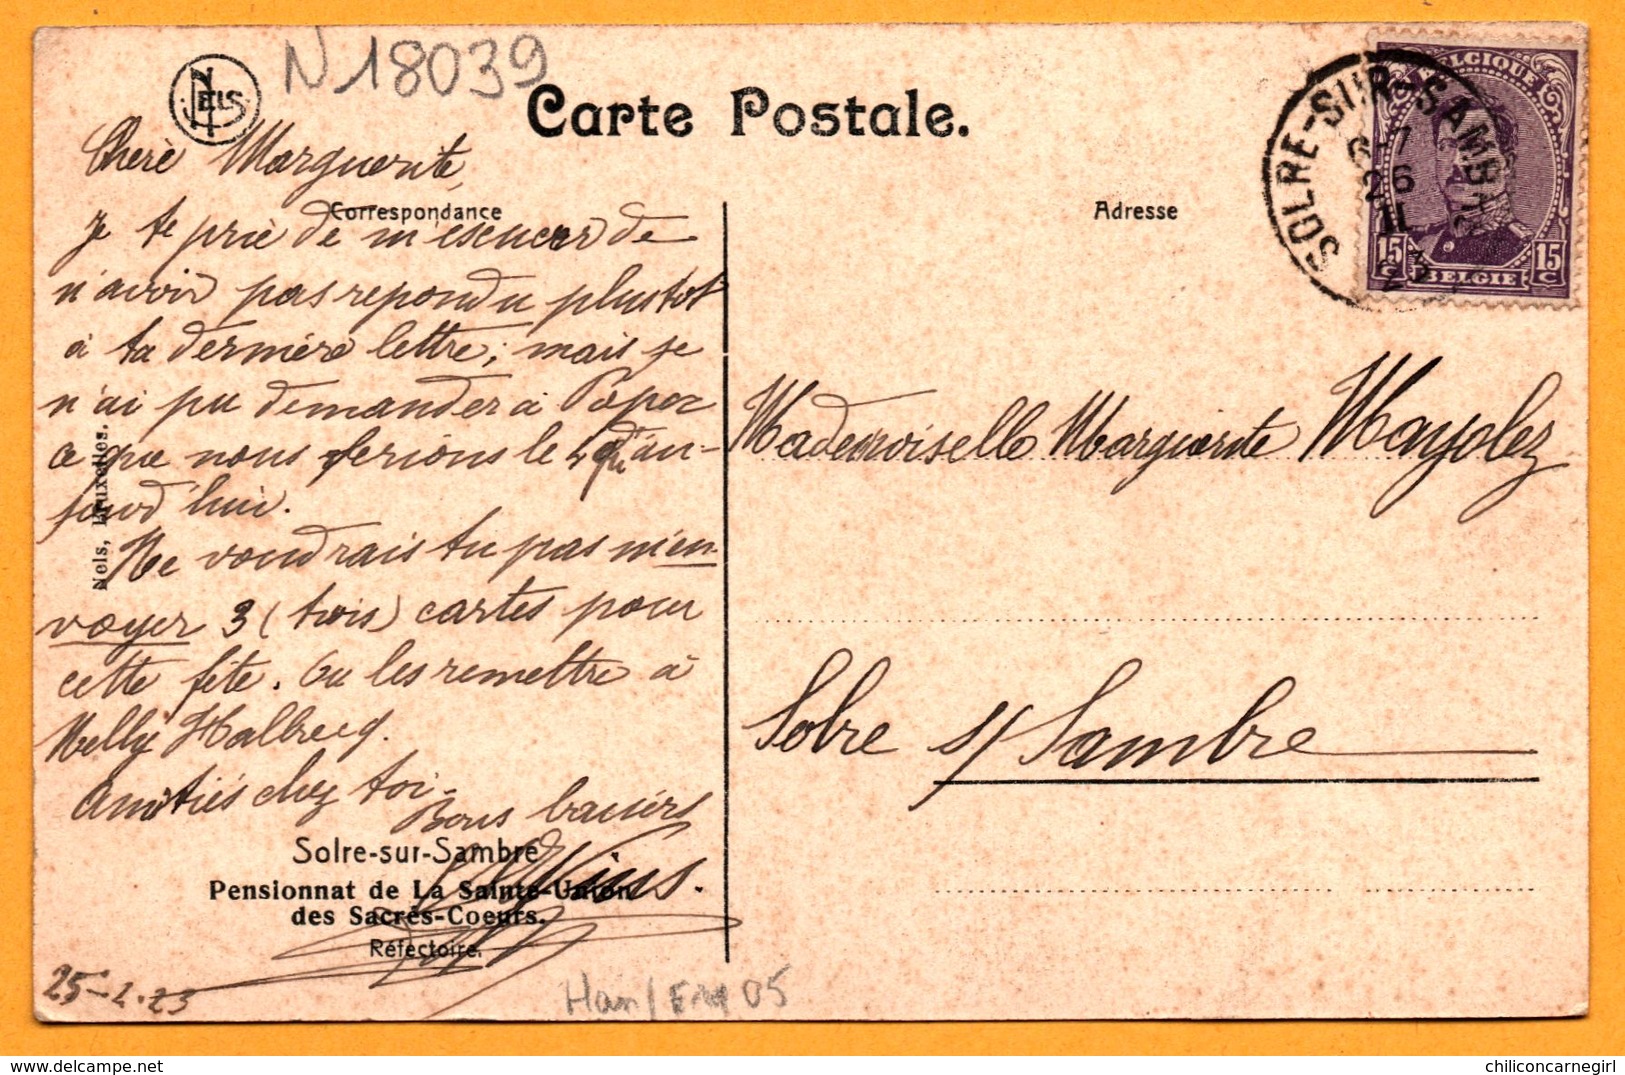 NELS
N 18039
Carte Postale.
Chère Marguerite,
Correspondance
Je te prie de m'escuser de
n'avoir pas repondu plustot
à ta dernière lettre; mais je
n'ai pu demander à
ce que nous ferions le 4 qu'au-
jourd'hui.
Ne voudrais tu pas m'en
voyer 3 (trois) cartes pour
cette fête. Ou les remettre à
Nelly Halbrecq.
Amitiés chez toi.
Bons baisers
Solre-sur-Sambre
Pensionnat de La Sainte-Union
des Sacrés-Coeurs.
Réfectoire.
25-2-23
Nels, Bruxelles.
Adresse
SOLRE-SUR-SAMBRE
6-7
26
II
23
BELGIQUE
15 C
15 C
BELGIE
Mademoiselle Marguerite Mayolez
Solre s/ Sambre
05
chiliconcarnegirl / delcampe.net